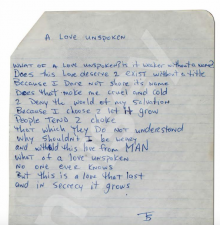 A LOVE UNSPOKEN
WHAT OF A LOVE UNSPOKEN? IS IT WEAKER WITHOUT A NAME?
Does this Love DESERVE 2 EXIST without a title
Because I Dare Not share its name
Does that make me cruel and cold
2 Deny the world of my salvation
Because I choose 2 let it grow
People TEND 2 choke
that which they Do Not understand
Why shouldn't I be weary
and withhold this love from MAN
What of a love unspoken
no one ever knows
But this is a love that lasts
and in Secrecy it grows